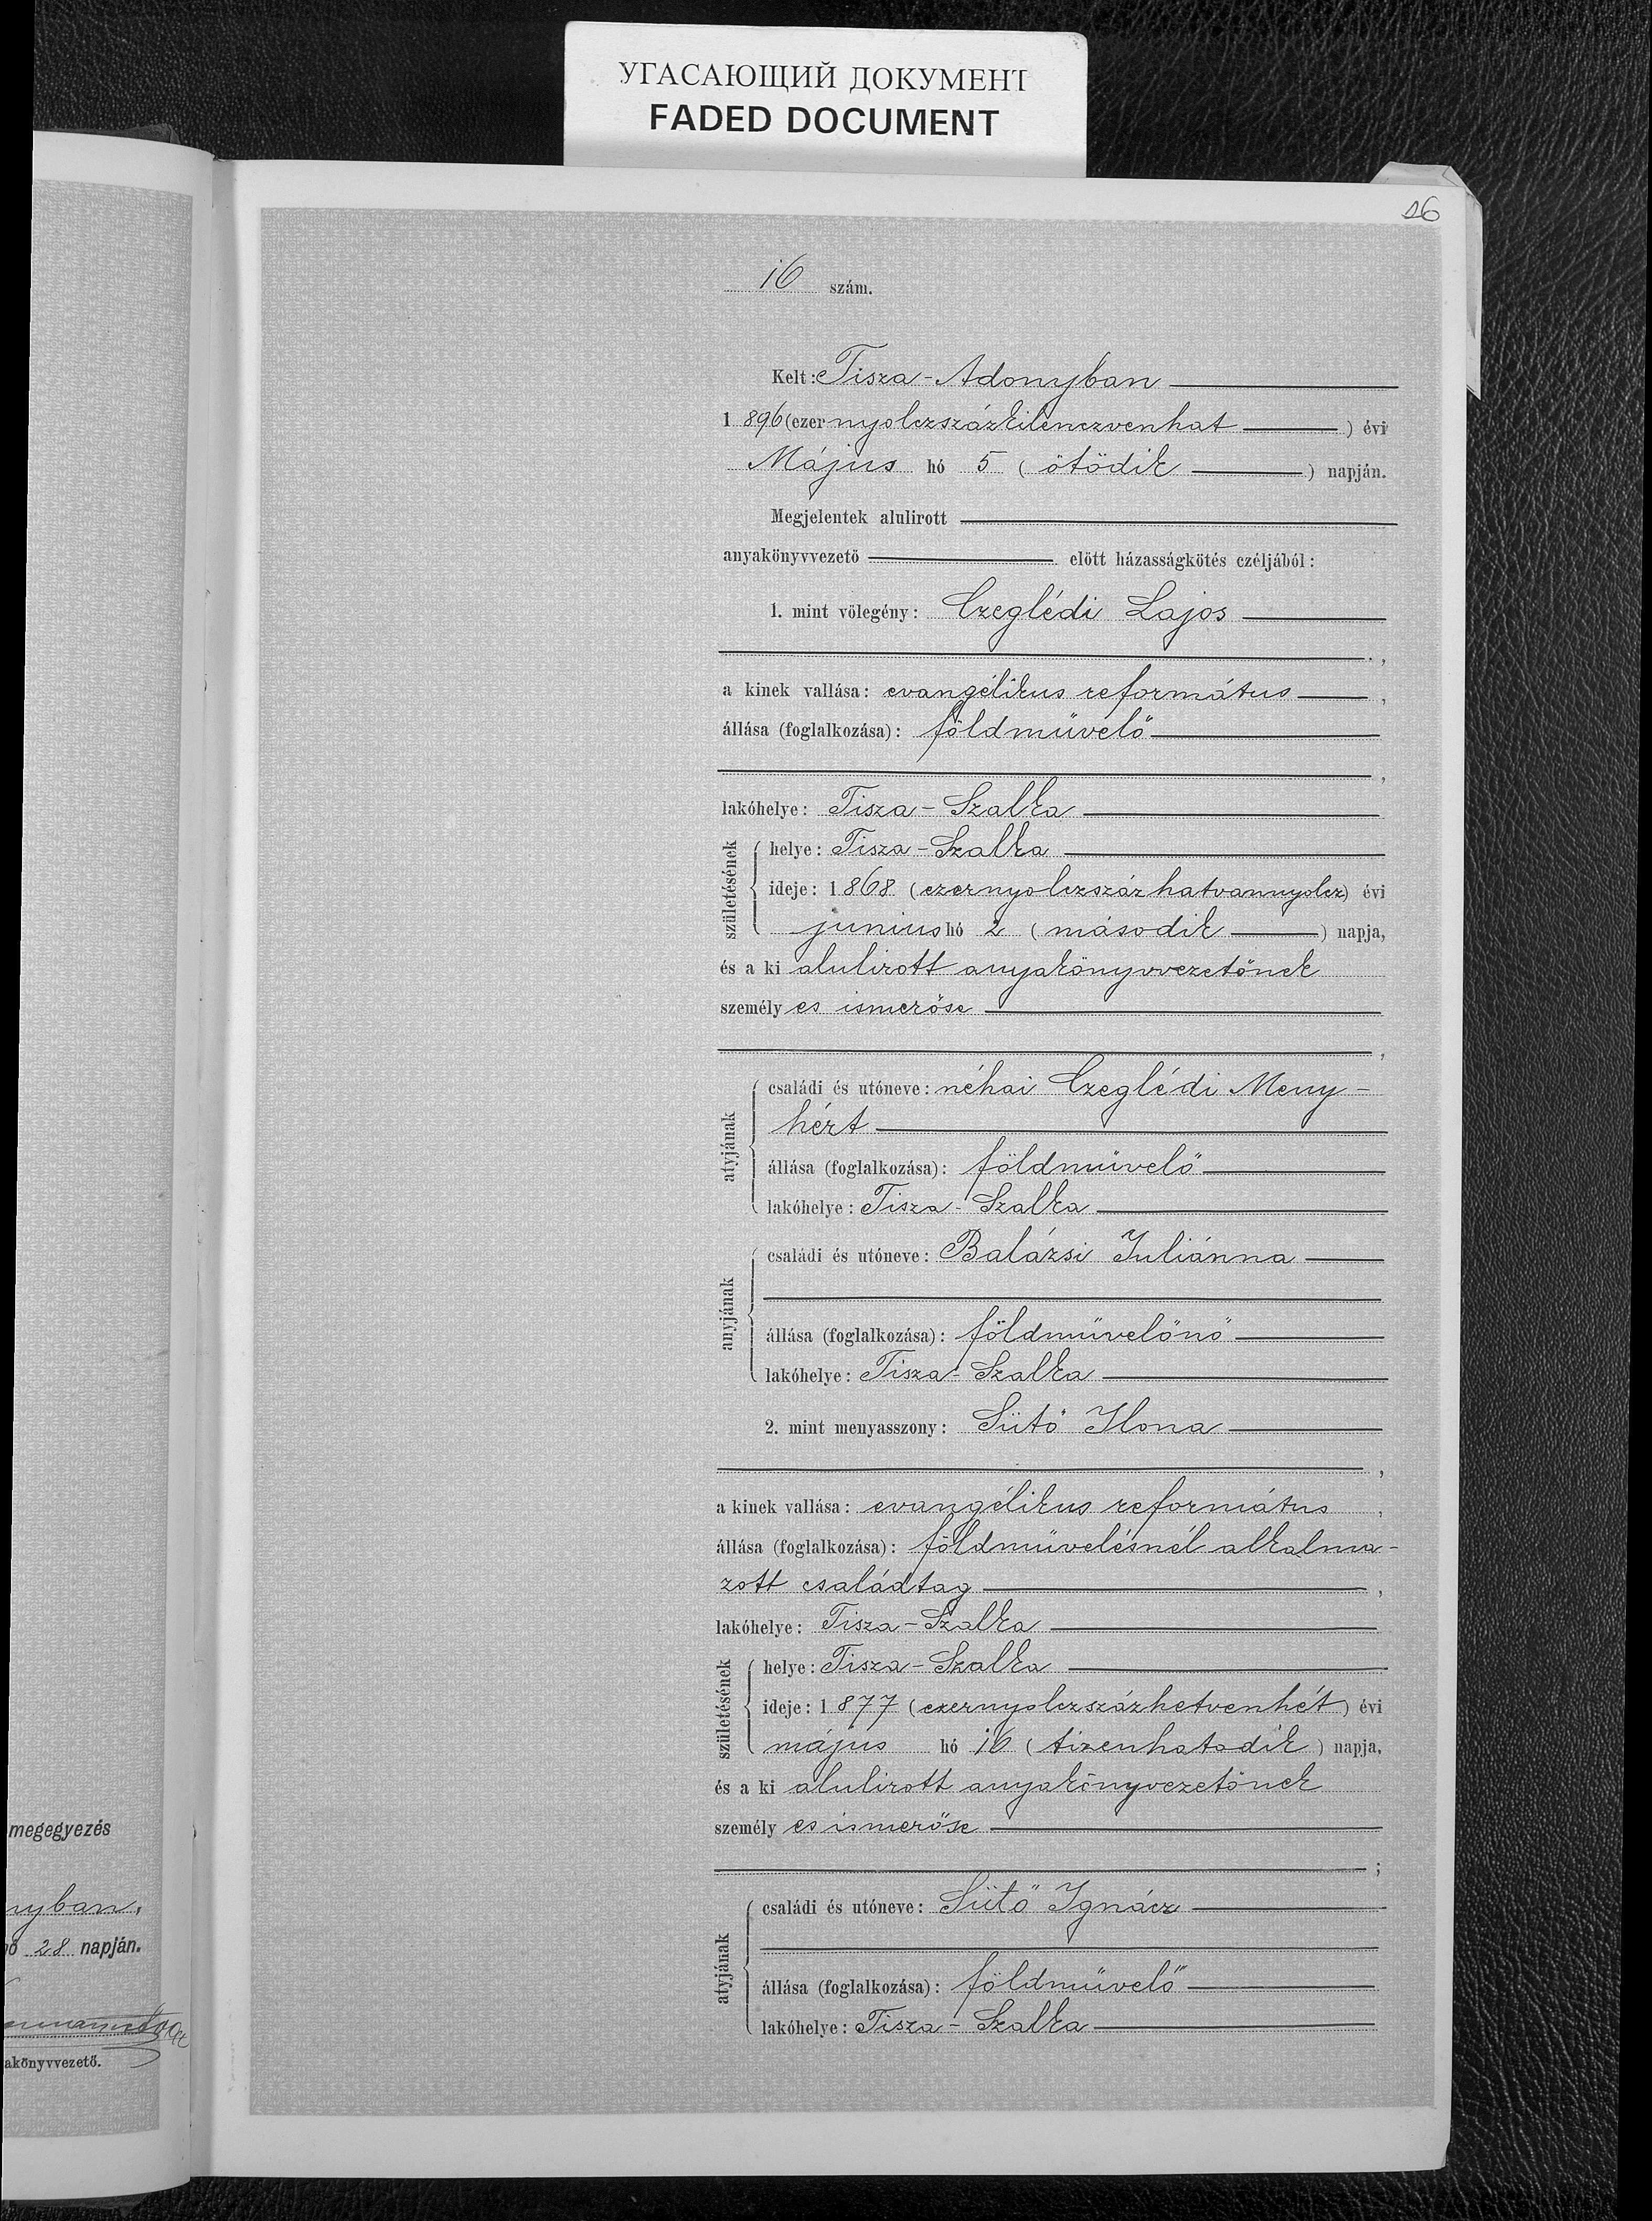 УГАСАЮЩИЙ ДОКУМЕНТ
FADED DOCUMENT
26
16 szám.
Kelt: Tisza-Adonyban
1896 (ezernyolczszázkilenczvenhat) évi
Május hó 5 (ötödik) napján.
Megjelentek alulirott
anyakönyvvezető előtt házasságkötés czéljából:
1. mint vőlegény: Czeglédi Lajos
,
a kinek vallása: evangélikus református,
állása (foglalkozása): földmüvelő
,
lakóhelye: Tisza-Szalka
születésének
helye: Tisza-Szalka
ideje: 1868 (ezernyolczszázhatvannyolcz) évi
junius hó 2 (második) napja,
és a ki alulirott anyakönyvvezetőnek
személyes ismerőse
,
atyjának
családi és utóneve: néhai Czeglédi Meny-
hért
állása (foglalkozása): földmüvelő
lakóhelye: Tisza-Szalka
anyjának
családi és utóneve: Balázsi Juliánna
állása (foglalkozása): földmüvelőnő
lakóhelye: Tisza-Szalka
2. mint menyasszony: Sütő Ilona
,
a kinek vallása: evangélikus református,
állása (foglalkozása): földmüvelésnél alkalma-
zott családtag,
lakóhelye: Tisza-Szalka
születésének
helye: Tisza-Szalka
ideje: 1877 (ezernyolczszázhetvenhét) évi
május hó 16 (tizenhatodik) napja,
és a ki alulirott anyakönyvezetőnek
személyes ismerőse
;
atyjának
családi és utóneve: Sütő Ignácz
állása (foglalkozása): földmüvelő
lakóhelye: Tisza-Szalka
megegyezés
nyban,
hó 28 napján.
akönyvvezető.